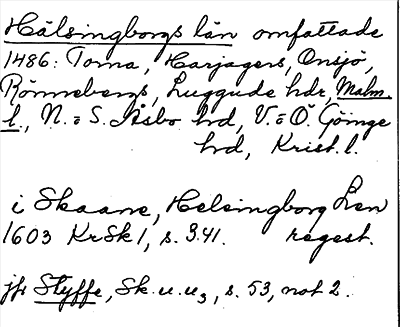 Hälsingborgs län omfattade
1486: Torna, Harjagers, Onsjö,
Rönnebergs, Luggude hdr, Malm.
l., N. o S. Åsbo hrd, V. o Ö. Göinge
hrd, Krist. l.
i Skaane, Helsingborg Len
1603 KrSk1, s. 341. regest.
jfr Styffe, Sk.u.u3, s. 53, not 2.